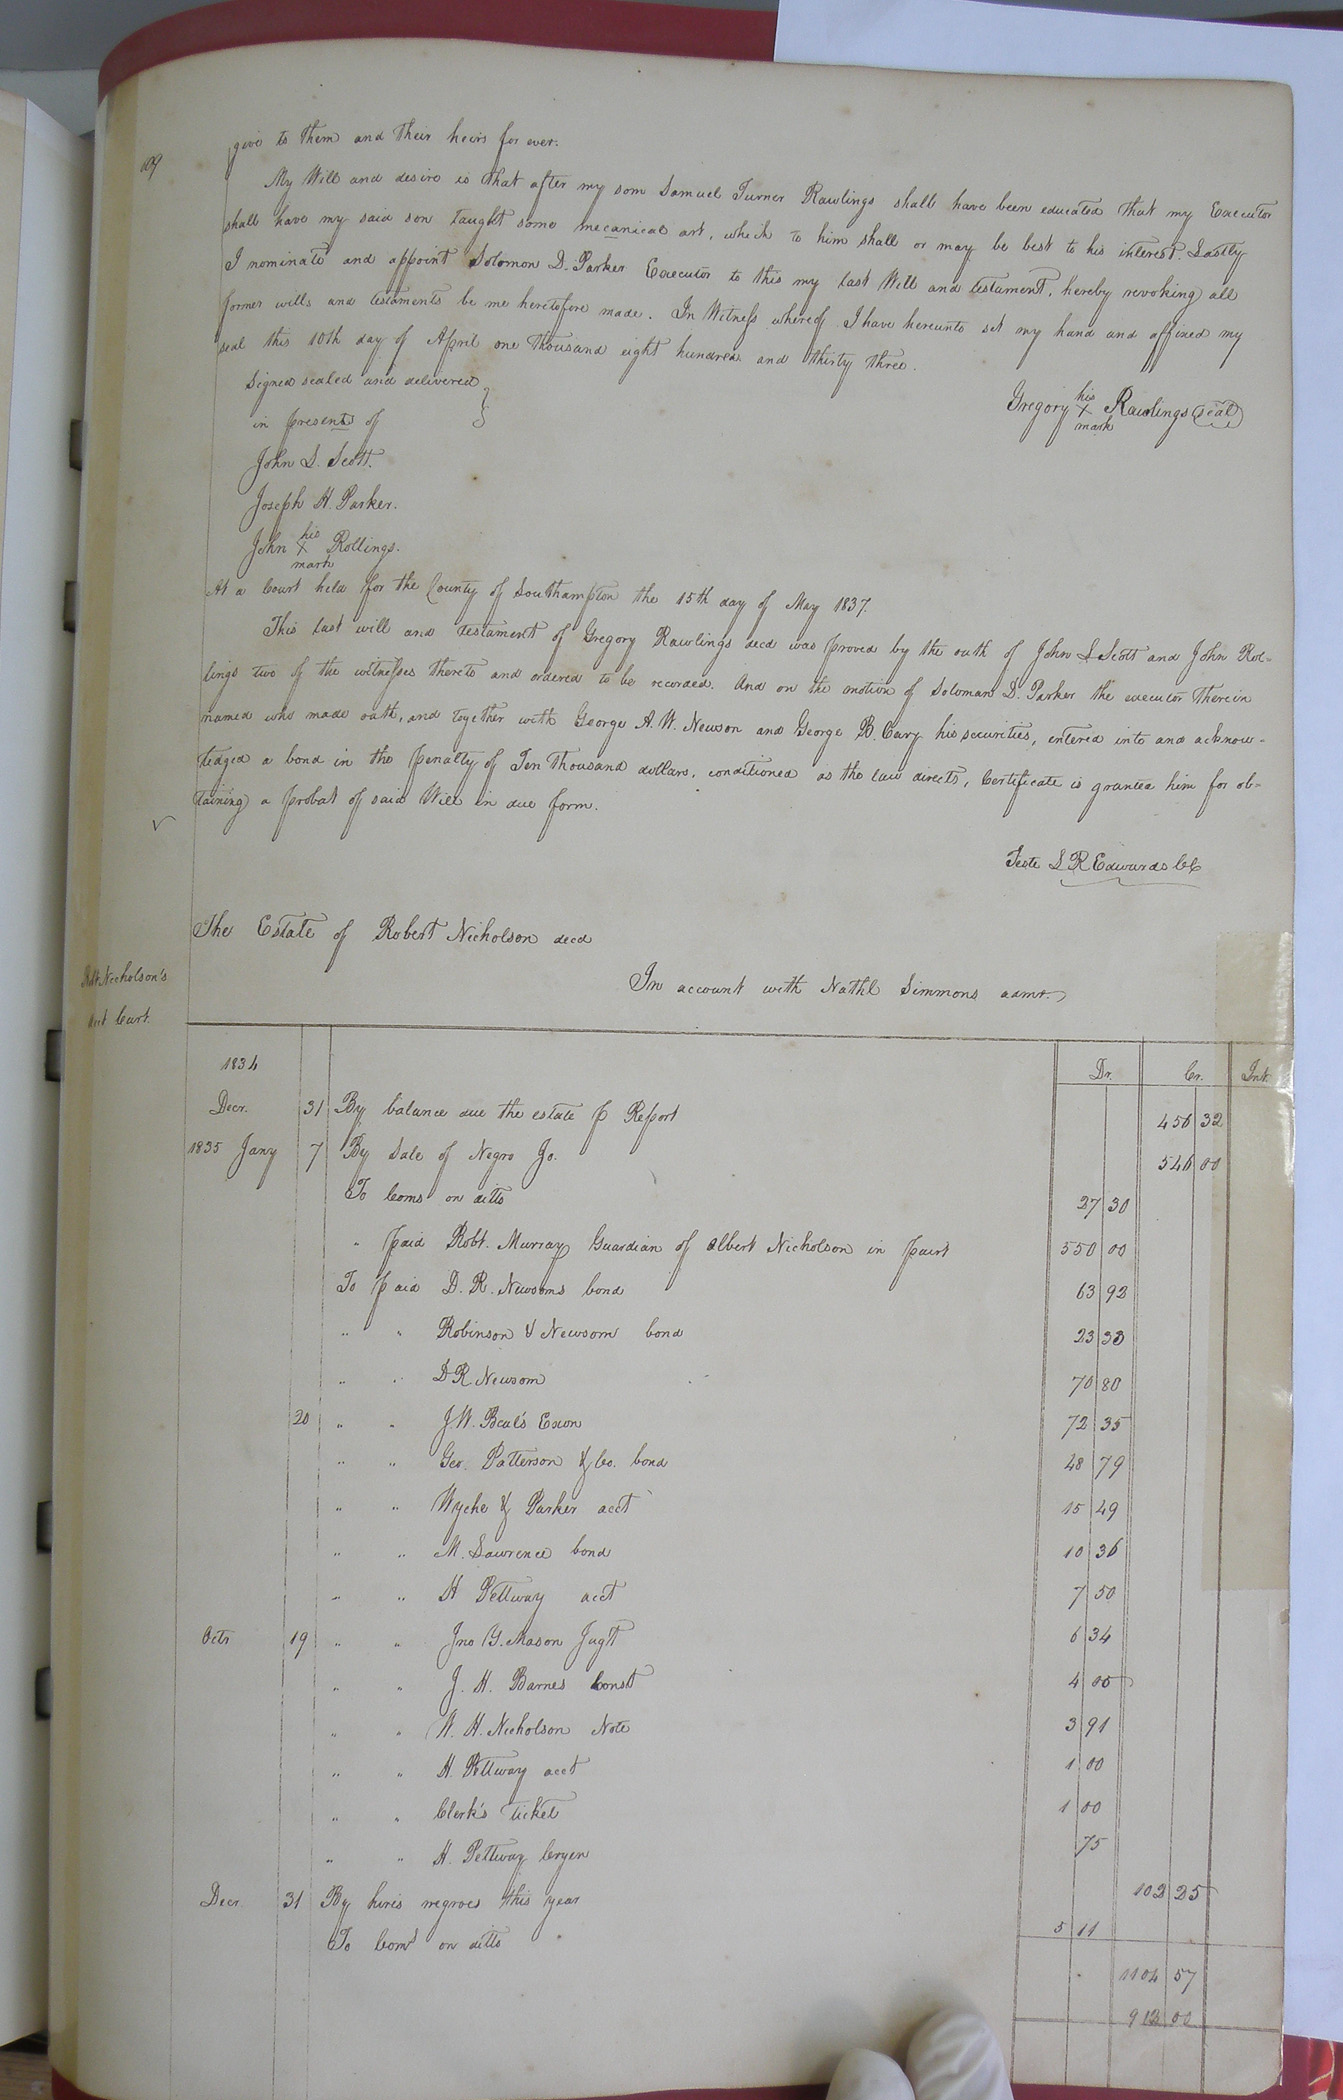 109
give to them and their heirs for ever.
My Will and desire is that after my som Samuel Turner Rawlings shall have been educated that my Executor
shall have my said son taught some mecanical art, which to him shall or may be best to his interest. Lastly
I nominate and appoint Solomon D. Parker Executor to this my last Will and testament, hereby revoking all
former wills and testaments be me heretofore made. In Witness whereof I have hereunto set my hand and affixed my
seal this 10th day of April one thousand eight hundred and thirty three.
Signed sealed and delivered
in present of
Gregory his X mark Rawlings (seal)
John S. Scott.
Joseph H. Parker.
John his X mark Rollings.
At a Court held for the County of Southampton the 15th day of May 1837.
This last will and testament of Gregory Rawlings decd was proved by the oath of John S Scott and John Rol=
lings two of the witnesses thereto and ordered to be recorded. And on the motion of Soloman D. Parker the executor therein
named who made oath, and together with George A. W. Newson and George B. Cary his securities, entered into and acknow-
ledged a bond in the penalty of Ten thousand dollars, conditioned as the law directs, Certificate is granted him for ob=
taining a probat of said Will in due form.
Teste L R Edwards CC
The Estate of Robert Nicholson decd
Robt Nicholson's
Acct Curt.
In account with Nathl Simmons admr.
1834 Dr. Cr. Int
Decr. 31 By balance due the estate p Report 456 32
1835 Jany 7 By Sale of Negro Jo. 546 00
To Coms on ditto 27 30
" paid Robt. Murray Guardian of Albert Nicholson in part 550 00
To paid D. R. Newsoms bond 63 92
" " Robinson & Newsom bond 23 33
" " D R Newsom 70 80
20 " " J. W. Beal's Exon 72 35
" " Geo. Patterson & Co. bond 48 79
" " Wyche & Parker acct 15 49
" " M. Lawrence bond 10 36
" " H Pettway acct 7 50
Octr 19 " " Jno Y. Mason Jugt 6 34
" " J. H. Barnes Const 4 05
" " W. H. Nicholson Note 3 91
" " H. Pettway acct 1 00
" " Clerk's ticket 1 00
" " H. Pettway Cryer 75
Decr 31 By hires negroes this year 102 25
To Coms on ditto 5 11
1104 57
912 00